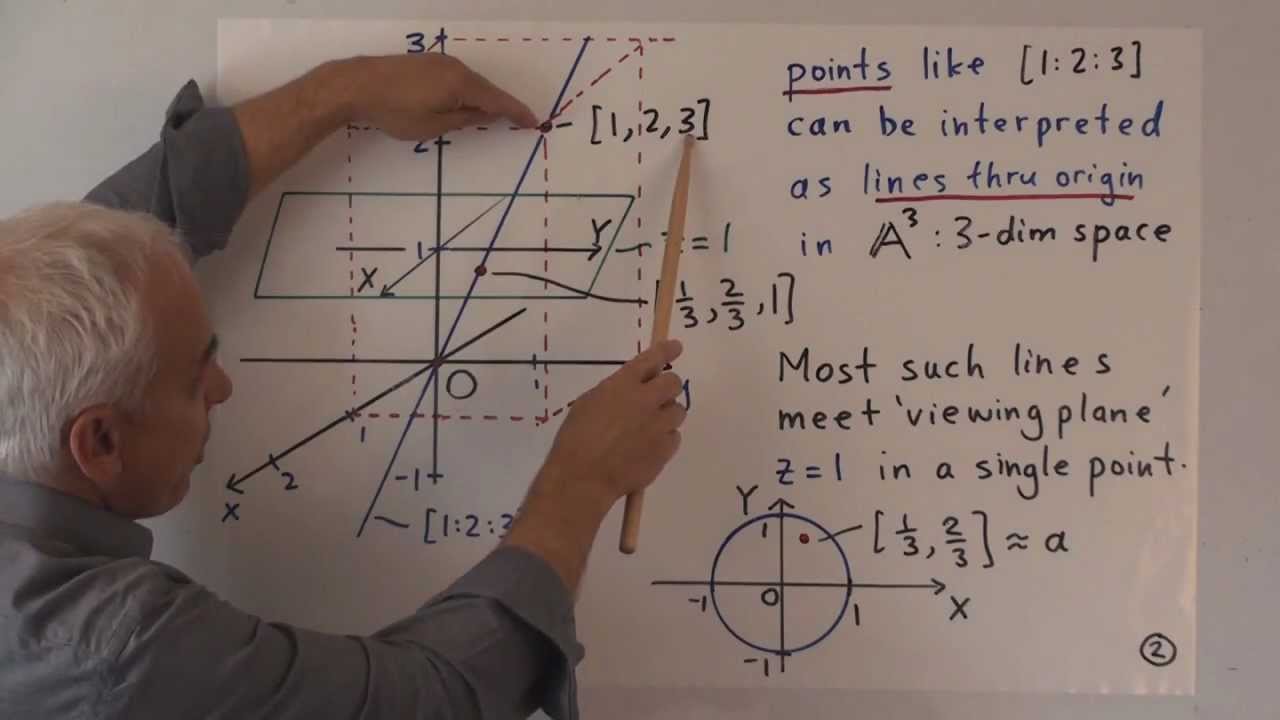 points like [1:2:3]
can be interpreted
as lines thru origin
in A³ : 3-dim space
Most such lines
meet 'viewing plane'
z=1 in a single point.
3
[1,2,3]
2
Y
1
= 1
X
1/3, 2/3, 1]
O
1
2
X
-1
[1:2:3
Y
1
[1/3, 2/3] ≈ a
O
-1
1
X
-1
2